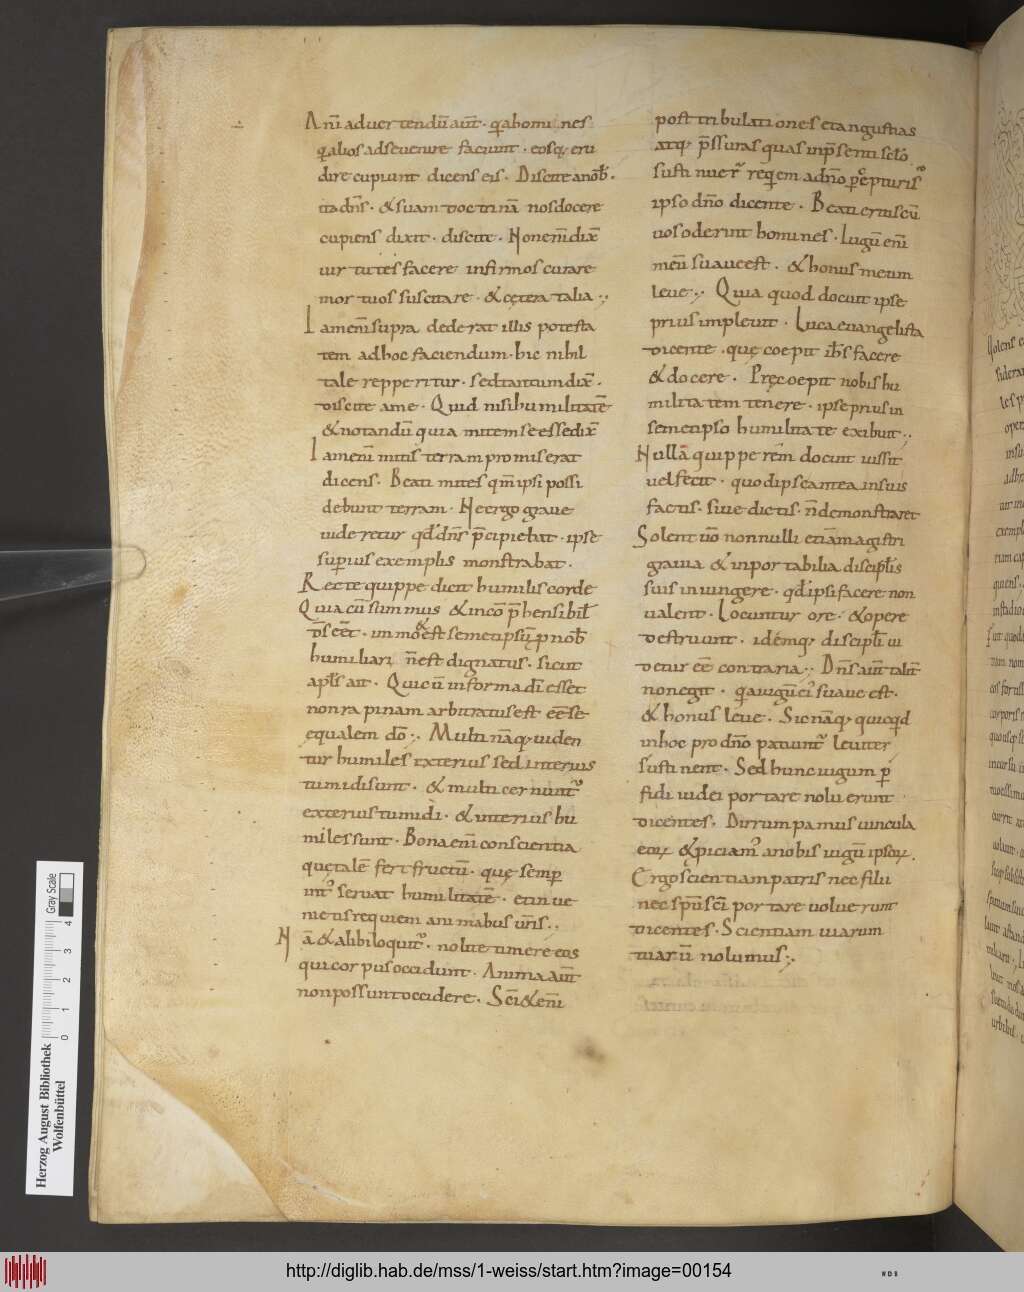 Anī aduertendū aūt · q̄a homines
q̄ alios adse uenire faciunt · eosq; eru
dire cupiunt dicens eis · Discite a nob̄ ·
ita dn̄s · & suam doctrinā nos docere
cupiens dixit · discite · Non enī dix̄
uirtutes facere infirmos curare
mortuos suscitare · & cętera talia ·,
Iam enī supra dederat illis potesta
tem ad hoc faciendum · hic nihil
tale repperitur · sed tantum dix̄ ·
discite a me · Quid nisi humilitatē
& notandū quia mitem se esse dix̄
Iam enī mitis terram promiserat
dicens · Beati mites qm̄ ipsi possi
debunt terram · Ne ergo graue
uideretur qd̄ dn̄s p̄cipiebat · ipse
superius exemplis monstrabat ·
Recte quippe dicit humilis corde
Quia cū summus & incōp̄hensibil̄
d̄s eēt · in mo&̄ est semetipsū p nob̄
humiliari n̄ est dignatus · sicut
apl̄s ait · Qui cū in forma dī esset
non rapinam arbitratus est eē se
equalem dō ·, Multi nāq; uiden
tur humiles exterius sed interius
tumidi sunt · & multi cernunt̄
exterius tumidi · & interius hu
miles sunt · Bona enī conscientia
quę talē fert fructū · quę semp
int̄ seruat humilitatē · et inue
nietis requiem animabus ur̄is ·,
Nā & alibi loquit̄ · nolite timere eos
qui corpus occidunt · Anima aūt
non possunt occidere · Scī & enī
post tribulationes et angustias
atq; p̄ssuras quas in p̄senti sclo
sustinuer̄ requiem a dn̄o percepturi s̄
ipso dn̄o dicente · Beati eritis cū
uos oderint homines · Iugū enī
meū suaue est · & honus meum
leue ·, Quia quod docuit ipse
prius impleuit · Luca euangelista
dicente · quę coepit ih̄s facere
& docere · Pręcoepit nobis hu
militatem tenere · ipse prius in
semetipso humilitate exibuit ·,
Nullā quippe rēm docuit iussit
uel fecit · quod ipse antea in suis
factis · siue dictis · n̄ demonstraret
Solent uō nonnulli etiā magistri
grauia & inportabilia discipl̄is
suis iniungere · qd̄ ipsi facere non
ualent · Locuntur ore · & opere
destruunt · idemq; discipl̄i ui
detur eē contraria ·, Dn̄s aūt talit̄
non egit · q̄a iugū ei' suaue est ·
& honus leue · Sic nāq; quicqd
in hoc pro dn̄o patiunt̄ leuiter
sustinent · Sed hunc iugum p
fidi iudei portare noluerunt
dicentes · Dirrumpamus uincula
eoꝝ & piciam' a nobis iugū ipsoꝝ ·
Ergo scientiam patris nec filii
nec sp̄u sc̄i portare uoluerunt
dicentes · Scientiam uiarum
tuarū nolumus ·,
Herzog August Bibliothek
Wolfenbüttel
Gray Scale
0 1 2 3 4
http://diglib.hab.de/mss/1-weiss/start.htm?image=00154